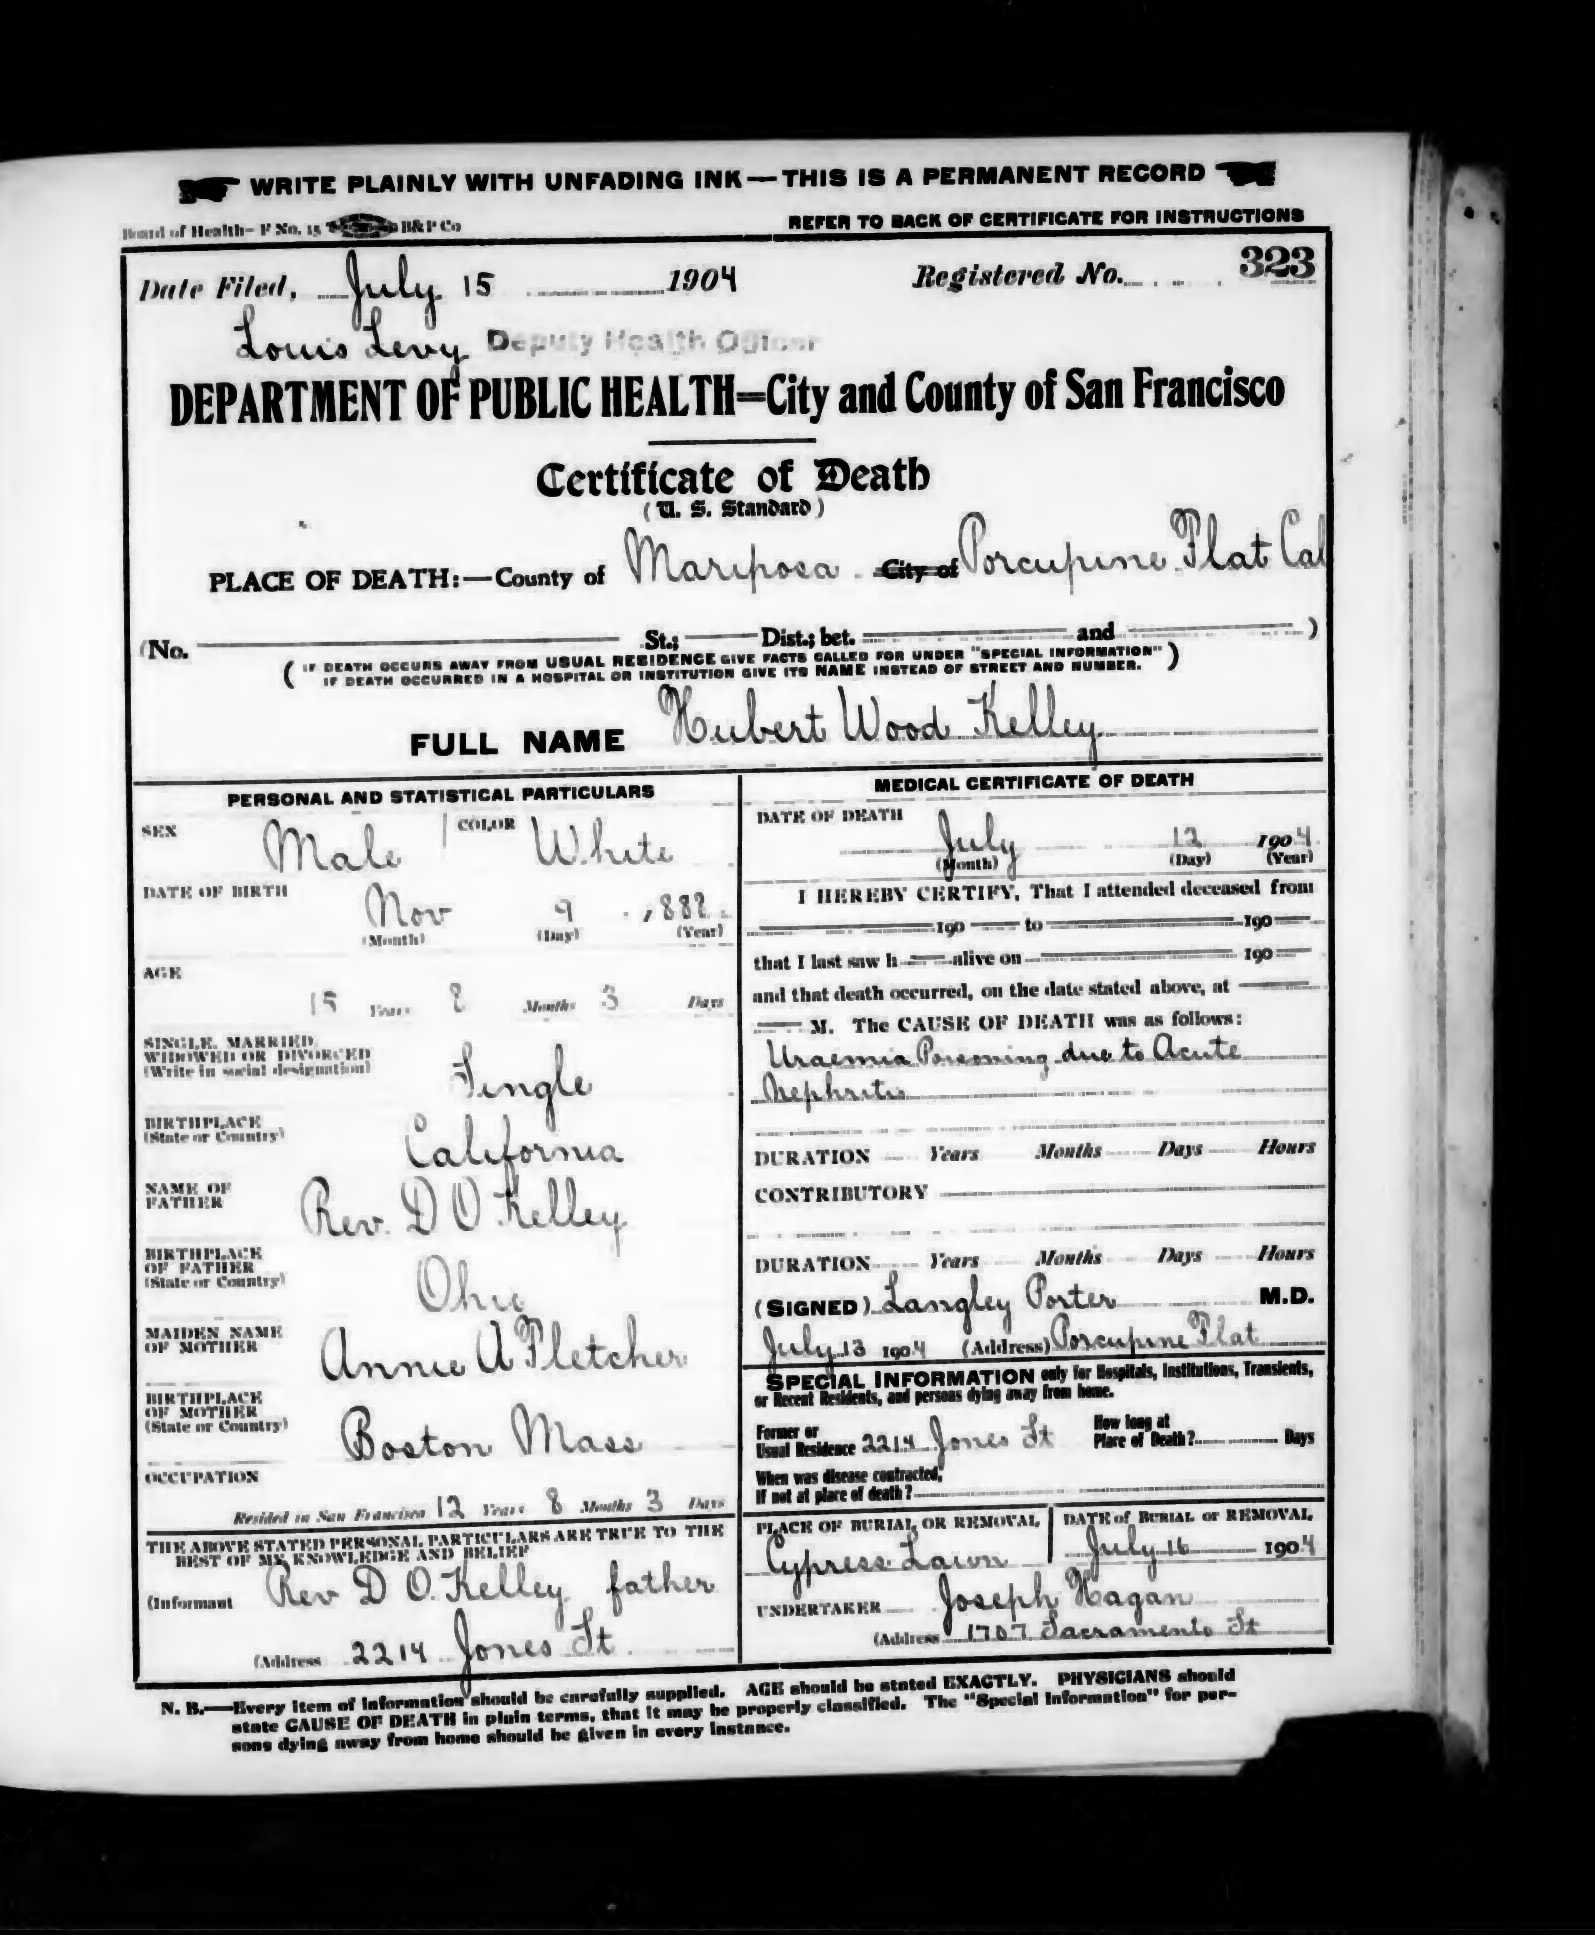 WRITE PLAINLY WITH UNFADING INK—THIS IS A PERMANENT RECORD
Board of Health–F No. 15 B&P Co
REFER TO BACK OF CERTIFICATE FOR INSTRUCTIONS
Date Filed, July 15 1904 Registered No. 323
Louis Levy Deputy Health Officer
DEPARTMENT OF PUBLIC HEALTH=City and County of San Francisco
Certificate of Death
(U. S. Standard)
PLACE OF DEATH:—County of Mariposa City of Porcupine Flat Cal
(No. St.; Dist.; bet. and )
(IF DEATH OCCURS AWAY FROM USUAL RESIDENCE GIVE FACTS CALLED FOR UNDER "SPECIAL INFORMATION"
IF DEATH OCCURRED IN A HOSPITAL OR INSTITUTION GIVE ITS NAME INSTEAD OF STREET AND NUMBER.)
FULL NAME Hubert Wood Kelley
PERSONAL AND STATISTICAL PARTICULARS
SEX Male COLOR White
DATE OF BIRTH Nov 9 1888
(Month) (Day) (Year)
AGE
15 Years 8 Months 3 Days
SINGLE, MARRIED,
WIDOWED OR DIVORCED
(Write in social designation) Single
BIRTHPLACE
(State or Country) California
NAME OF
FATHER Rev. D O Kelley
BIRTHPLACE
OF FATHER
(State or Country) Ohio
MAIDEN NAME
OF MOTHER Annie A Fletcher
BIRTHPLACE
OF MOTHER
(State or Country) Boston Mass
OCCUPATION
Resided in San Francisco 12 Years 8 Months 3 Days
THE ABOVE STATED PERSONAL PARTICULARS ARE TRUE TO THE
BEST OF MY KNOWLEDGE AND BELIEF
(Informant Rev D O. Kelley father
(Address 2214 Jones St
MEDICAL CERTIFICATE OF DEATH
DATE OF DEATH
July 12 1904
(Month) (Day) (Year)
I HEREBY CERTIFY, That I attended deceased from
190 to 190
that I last saw h alive on 190
and that death occurred, on the date stated above, at
M. The CAUSE OF DEATH was as follows:
Uraemia Poisoning due to Acute
Nephritis
DURATION Years Months Days Hours
CONTRIBUTORY
DURATION Years Months Days Hours
(SIGNED) Langley Porter M.D.
July 13 1904 (Address) Porcupine Flat
SPECIAL INFORMATION only for Hospitals, Institutions, Transients,
or Recent Residents, and persons dying away from home.
Former or
Usual Residence 2214 Jones St
How long at
Place of Death? Days
When was disease contracted,
If not at place of death?
PLACE OF BURIAL OR REMOVAL
Cypress Lawn
DATE of BURIAL or REMOVAL
July 16 1904
UNDERTAKER Joseph Hagan
(Address 1707 Sacramento St
N. B.—Every item of information should be carefully supplied. AGE should be stated EXACTLY. PHYSICIANS should
state CAUSE OF DEATH in plain terms, that it may be properly classified. The "Special Information" for per-
sons dying away from home should be given in every instance.